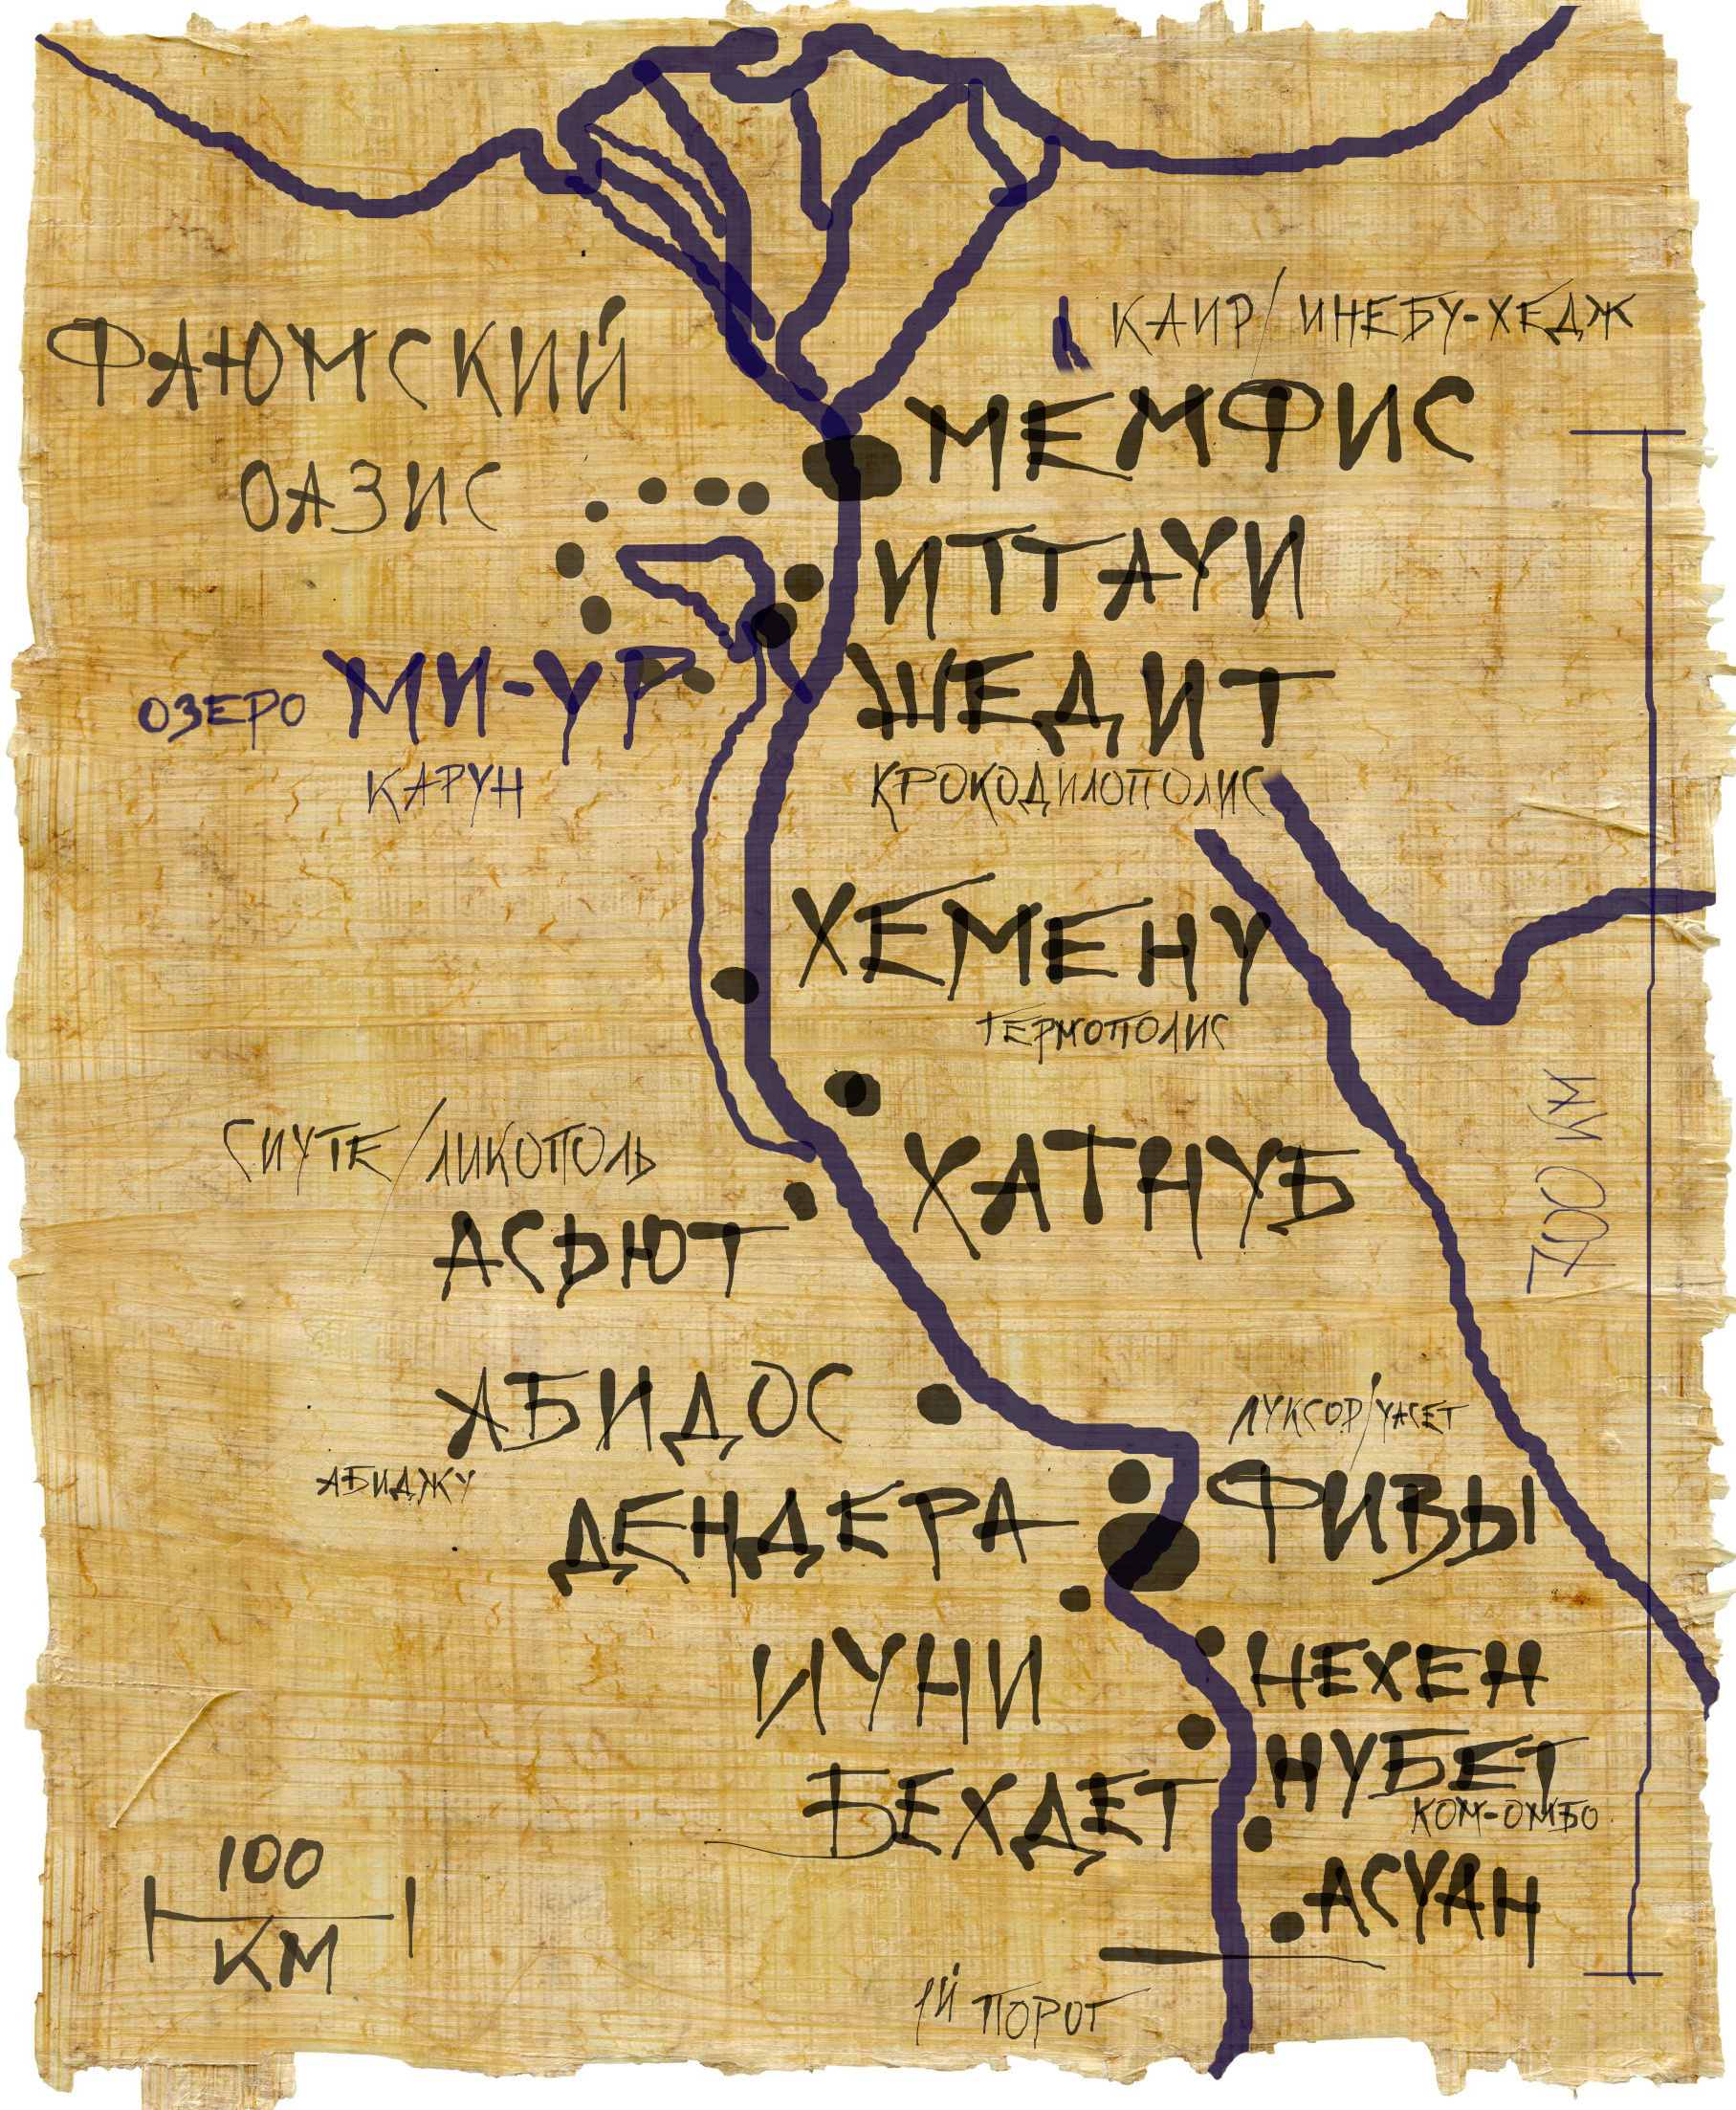 КАИР/ИНЕБУ-ХЕДЖ
ФАЮМСКИЙ
ОАЗИС
МЕМФИС
ИТТАУИ
ОЗЕРО МИ-УР
КАРУН
ШЕДИТ
КРОКОДИЛОПОЛИС
ХЕМЕНУ
ГЕРМОПОЛИС
СИУТЕ/ЛИКОПОЛЬ
АСЬЮТ
ХАТНУБ
700 КМ
АБИДОС
АБИДЖУ
ЛУКСОР/УАСЕТ
ФИВЫ
ДЕНДЕРА
ИУНИ
НЕХЕН
БЕХДЕТ
НУБЕТ
КОМ-ОМБО
АСУАН
1Й ПОРОГ
100
КМ